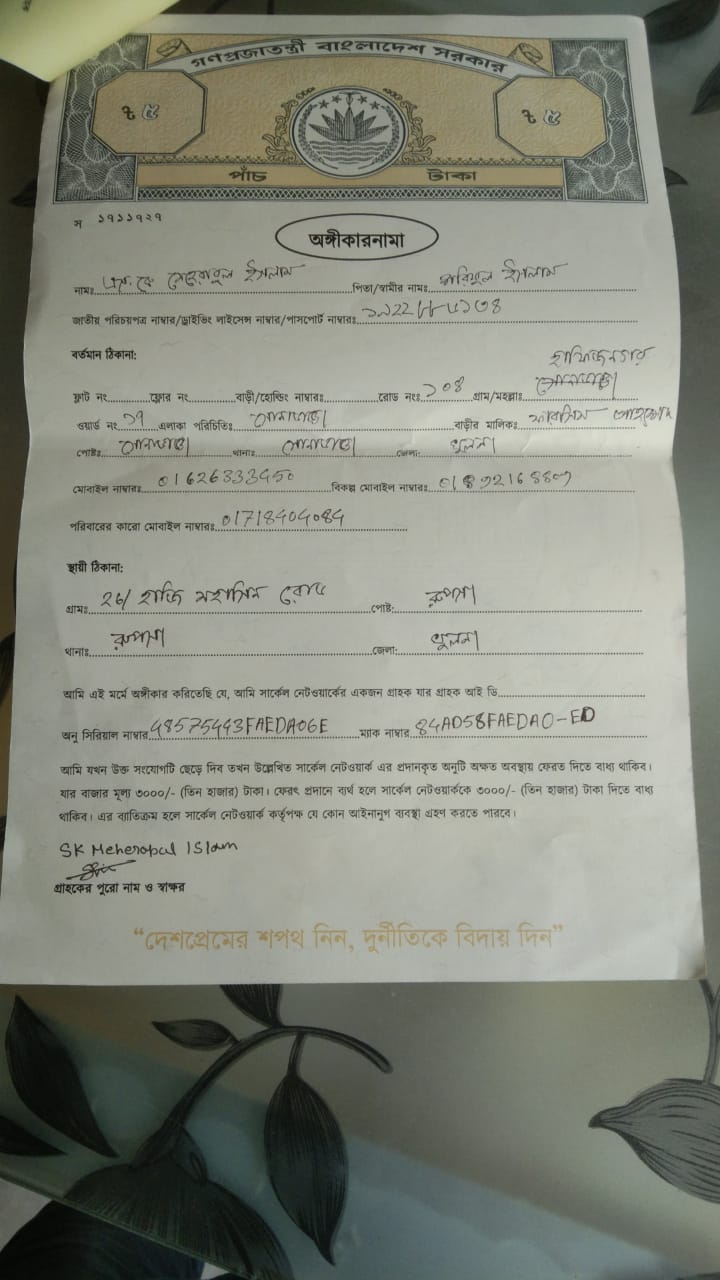 গণপ্রজাতন্ত্রী বাংলাদেশ সরকার
৳ ৫ ৳ ৫
পাঁচ টাকা
স ১৭১১৭২৭
অঙ্গীকারনামা
নামঃ এস. কে মেহেরাবুল ইসলাম পিতা/স্বামীর নামঃ ইসলাম
জাতীয় পরিচয়পত্র নাম্বার/ড্রাইভিং লাইসেন্স নাম্বার/পাসপোর্ট নাম্বারঃ
বর্তমান ঠিকানা:
হাফিজনগর
ফ্লাট নং ফ্লোর নং বাড়ী/হোল্ডিং নাম্বারঃ রোড নংঃ ১০৪ গ্রাম/মহল্লাঃ সোনাডাঙ্গা
ওয়ার্ড নং ১৭ এলাকা পরিচিতিঃ সোনাডাঙ্গা বাড়ীর মালিকঃ
পোষ্টঃ সোনাডাঙ্গা থানাঃ সোনাডাঙ্গা জেলা: খুলনা
মোবাইল নাম্বারঃ 01626333450 বিকল্প মোবাইল নাম্বারঃ
পরিবারের কারো মোবাইল নাম্বারঃ 01718404084
স্থায়ী ঠিকানা:
গ্রামঃ 26/ হাজি মহাসিন রোড পোষ্ট: রুপসা
থানাঃ রুপসা জেলা: খুলনা
আমি এই মর্মে অঙ্গীকার করিতেছি যে, আমি সার্কেল নেটওয়ার্কের একজন গ্রাহক যার গ্রাহক আই ডি
অনু সিরিয়াল নাম্বার 48575443FAEDA06E ম্যাক নাম্বার 84AD58FAEDA0-ED
আমি যখন উক্ত সংযোগটি ছেড়ে দিব তখন উল্লেখিত সার্কেল নেটওয়ার্ক এর প্রদানকৃত অনুটি অক্ষত অবস্থায় ফেরত দিতে বাধ্য থাকিব।
যার বাজার মূল্য ৩০০০/- (তিন হাজার) টাকা। ফেরৎ প্রদানে ব্যর্থ হলে সার্কেল নেটওয়ার্ককে ৩০০০/- (তিন হাজার) টাকা দিতে বাধ্য
থাকিব। এর ব্যাতিক্রম হলে সার্কেল নেটওয়ার্ক কর্তৃপক্ষ যে কোন আইনানুগ ব্যবস্থা গ্রহণ করতে পারবে।
SK Meherabul ISlam
গ্রাহকের পুরো নাম ও স্বাক্ষর
“দেশপ্রেমের শপথ নিন, দুর্নীতিকে বিদায় দিন”